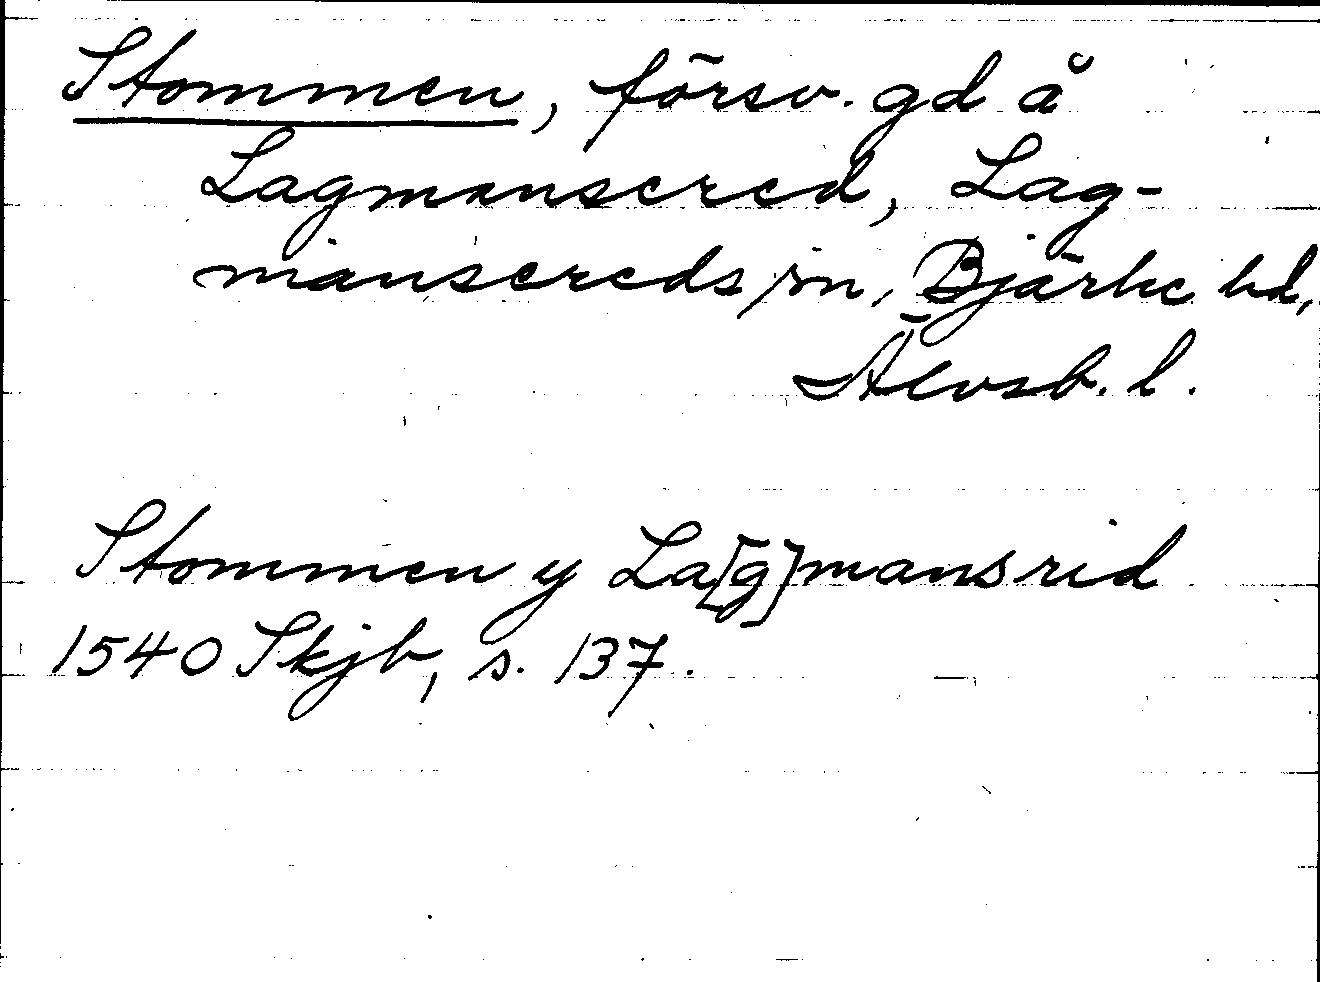 Stommen, försv. gd å
Lagmansered, Lag-
mansereds sn, Bjärke hd,
Älvsb. l.
Stommen y La[g]mansrid
1540 Skjb, s. 137.